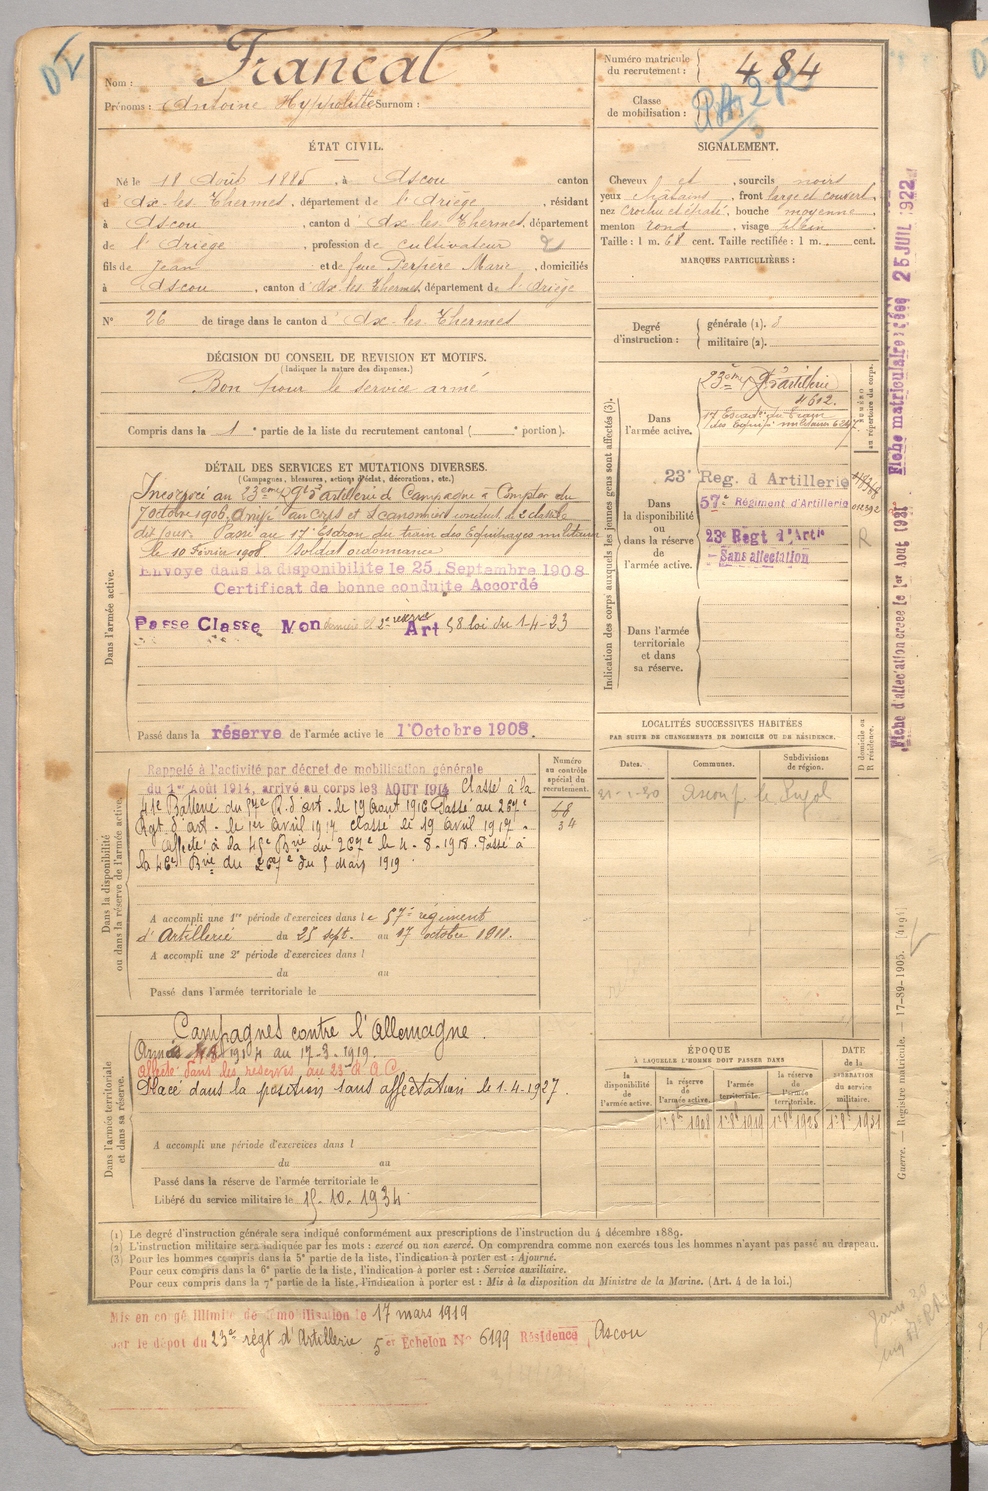 Nom : Francal
Prénoms : Antoine Hyppolitte Surnom :
Numéro matricule
du recrutement : 484
Classe
de mobilisation :
ÉTAT CIVIL.
Né le 18 Août 1885, à Ascou canton
d'Ax-les-Thermes, département de l'Ariège, résidant
à Ascou, canton d'Ax-les-Thermes, département
de l'Ariège, profession de cultivateur
fils de Jean et de feue Perpère Marie, domiciliés
à Ascou, canton d'Ax-les-Thermes, département de l'Ariège
N° 26 de tirage dans le canton d'Ax-les-Thermes
SIGNALEMENT.
Cheveux et, sourcils noirs
yeux châtains, front large et couvert,
nez crochu et épaté, bouche moyenne,
menton rond, visage plein
Taille : 1 m. 68 cent. Taille rectifiée : 1 m. cent.
MARQUES PARTICULIÈRES :
Degré
d'instruction :
générale (1).
militaire (2).
DÉCISION DU CONSEIL DE REVISION ET MOTIFS.
(Indiquer la nature des dispenses.)
Bon pour le service armé
Compris dans la 1e partie de la liste du recrutement cantonal ( e portion).
DÉTAIL DES SERVICES ET MUTATIONS DIVERSES.
(Campagnes, blessures, actions d'éclat, décorations, etc.)
Dans l'armée active.
Incorporé au 23ème Rgt d'artillerie de Campagne à Compter du
7 octobre 1906, arrivé au Corps et 2e canonnier conduct. le
dit jour. Passé au 17e Escadron du train des Equipages militaires
le 10 Février 1908. Soldat ordonnance
Envoyé dans la disponibilité le 25 Septembre 1908
Certificat de bonne conduite Accordé
Passe Classe Mon dernière et 2e réserve Art 58 loi du 1-4-23
Passé dans la réserve de l'armée active le 1er Octobre 1908.
Indication des corps auxquels les jeunes gens sont affectés (3).
NUMÉRO
au répertoire du corps.
Dans
l'armée active.
23ème Rt d'artillerie
4602.
17e Escadon du Train
des Equip. militaires
Dans
la disponibilité
ou
dans la réserve
de
l'armée active.
23e Reg. d'Artillerie
57e Régiment d'Artillerie
23e Regt d'Artie
Sans affectation
R
Dans l'armée
territoriale
et dans
sa réserve.
Fiche matriculaire créée 25 JUIL 1922
Fiche d'affectation créée le 1er Août 1931
Dans la disponibilité
ou dans la réserve de l'armée active.
Numéro
au contrôle
spécial du
recrutement.
Rappelé à l'activité par décret de mobilisation générale
du 1er Août 1914, arrivé au corps le 3 AOUT 1914 Classé à la
41e Batterie du 57e R. d'art. le 19 août 1916 Passé au 267e
Rgt d'art. le 1er avril 1917 classé le 19 avril 1917.
Affecté à la 45e Brie du 267e le 4-8-1918. Passé à
la 46e Brie du 267e du 5 Mars 1919.
68
34
A accompli une 1re période d'exercices dans le 57e régiment
d'Artillerie du 25 sept. au 17 octobre 1911.
A accompli une 2e période d'exercices dans l
du au
Passé dans l'armée territoriale le
LOCALITÉS SUCCESSIVES HABITÉES
PAR SUITE DE CHANGEMENTS DE DOMICILE OU DE RÉSIDENCE.
D domicile ou
R résidence.
Dates. Communes. Subdivisions
de région.
Dans l'armée territoriale
et dans sa réserve.
Campagnes contre l'Allemagne.
1914 au 17-3-1919.
Affecté dans les réserves au 23e A.C.
Placé dans la position sans affectation le 1-4-1927.
A accompli une période d'exercices dans l
du au
Passé dans la réserve de l'armée territoriale le
Libéré du service militaire le 15-10-1934
ÉPOQUE
À LAQUELLE L'HOMME DOIT PASSER DANS
DATE
de la
LIBÉRATION
du service
militaire.
la
disponibilité
de
l'armée active.
la réserve
de
l'armée active.
l'armée
territoriale.
la réserve
de
l'armée
territoriale.
1er 8bre 1908 1er 8bre 1919 1er 8bre 1925 1er 8bre 1931
Guerre. — Registre matricule. — 17-89-1905. [4194]
(1) Le degré d'instruction générale sera indiqué conformément aux prescriptions de l'instruction du 4 décembre 1889.
(2) L'instruction militaire sera indiquée par les mots : exercé ou non exercé. On comprendra comme non exercés tous les hommes n'ayant pas passé au drapeau.
(3) Pour les hommes compris dans la 5e partie de la liste, l'indication à porter est : Ajourné.
Pour ceux compris dans la 6e partie de la liste, l'indication à porter est : Service auxiliaire.
Pour ceux compris dans la 7e partie de la liste, l'indication à porter est : Mis à la disposition du Ministre de la Marine. (Art. 4 de la loi.)
Mis en congé illimité de démobilisation le 17 mars 1919
par le dépôt du 23e régt d'Artillerie 5e Echelon N° 6199 Résidence Ascou